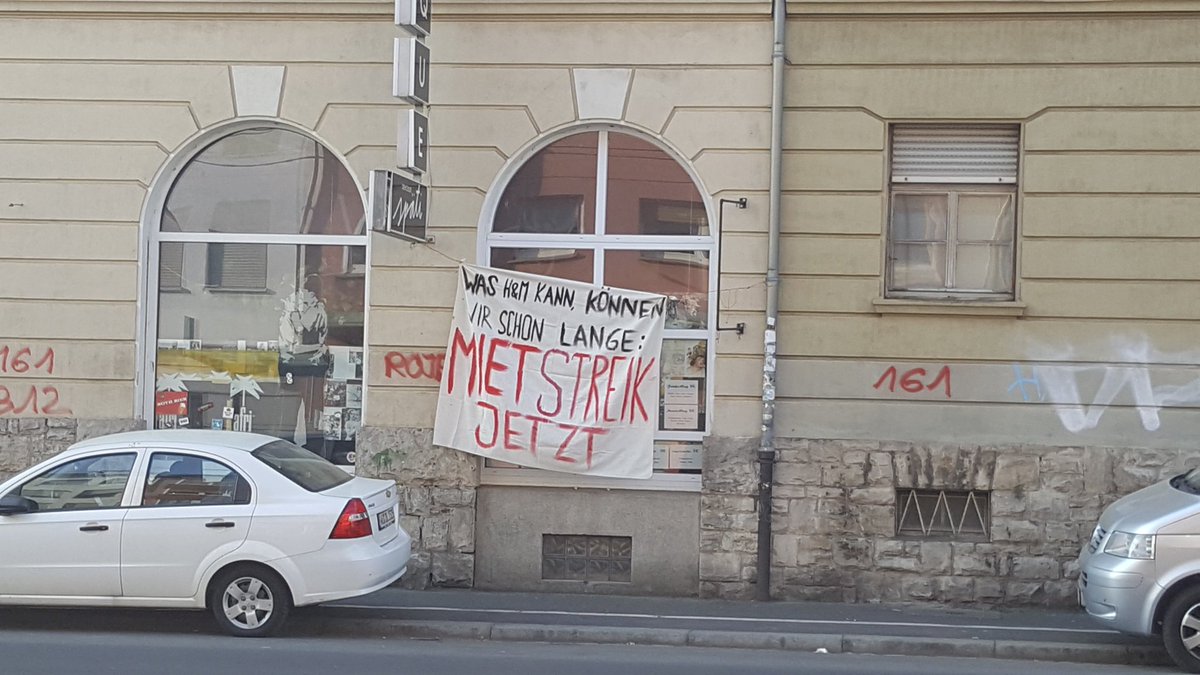 QUE
späti
WAS H&M KANN, KÖNNEN
WIR SCHON LANGE:
MIETSTREIK
JETZT
161
312
ROJ
161